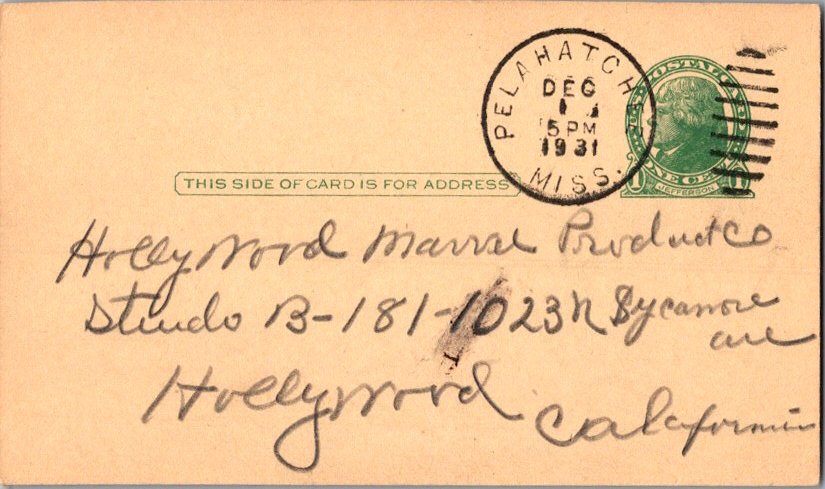 PELAHATCHIE
DEC
1
5 PM
1931
MISS.
U.S. POSTAL CARD
ONE CENT
1 JEFFERSON 1
THIS SIDE OF CARD IS FOR ADDRESS
HollyWood Marvel Product Co
Studo B-181-1023 N Sycamore
ave
Hollywood
California